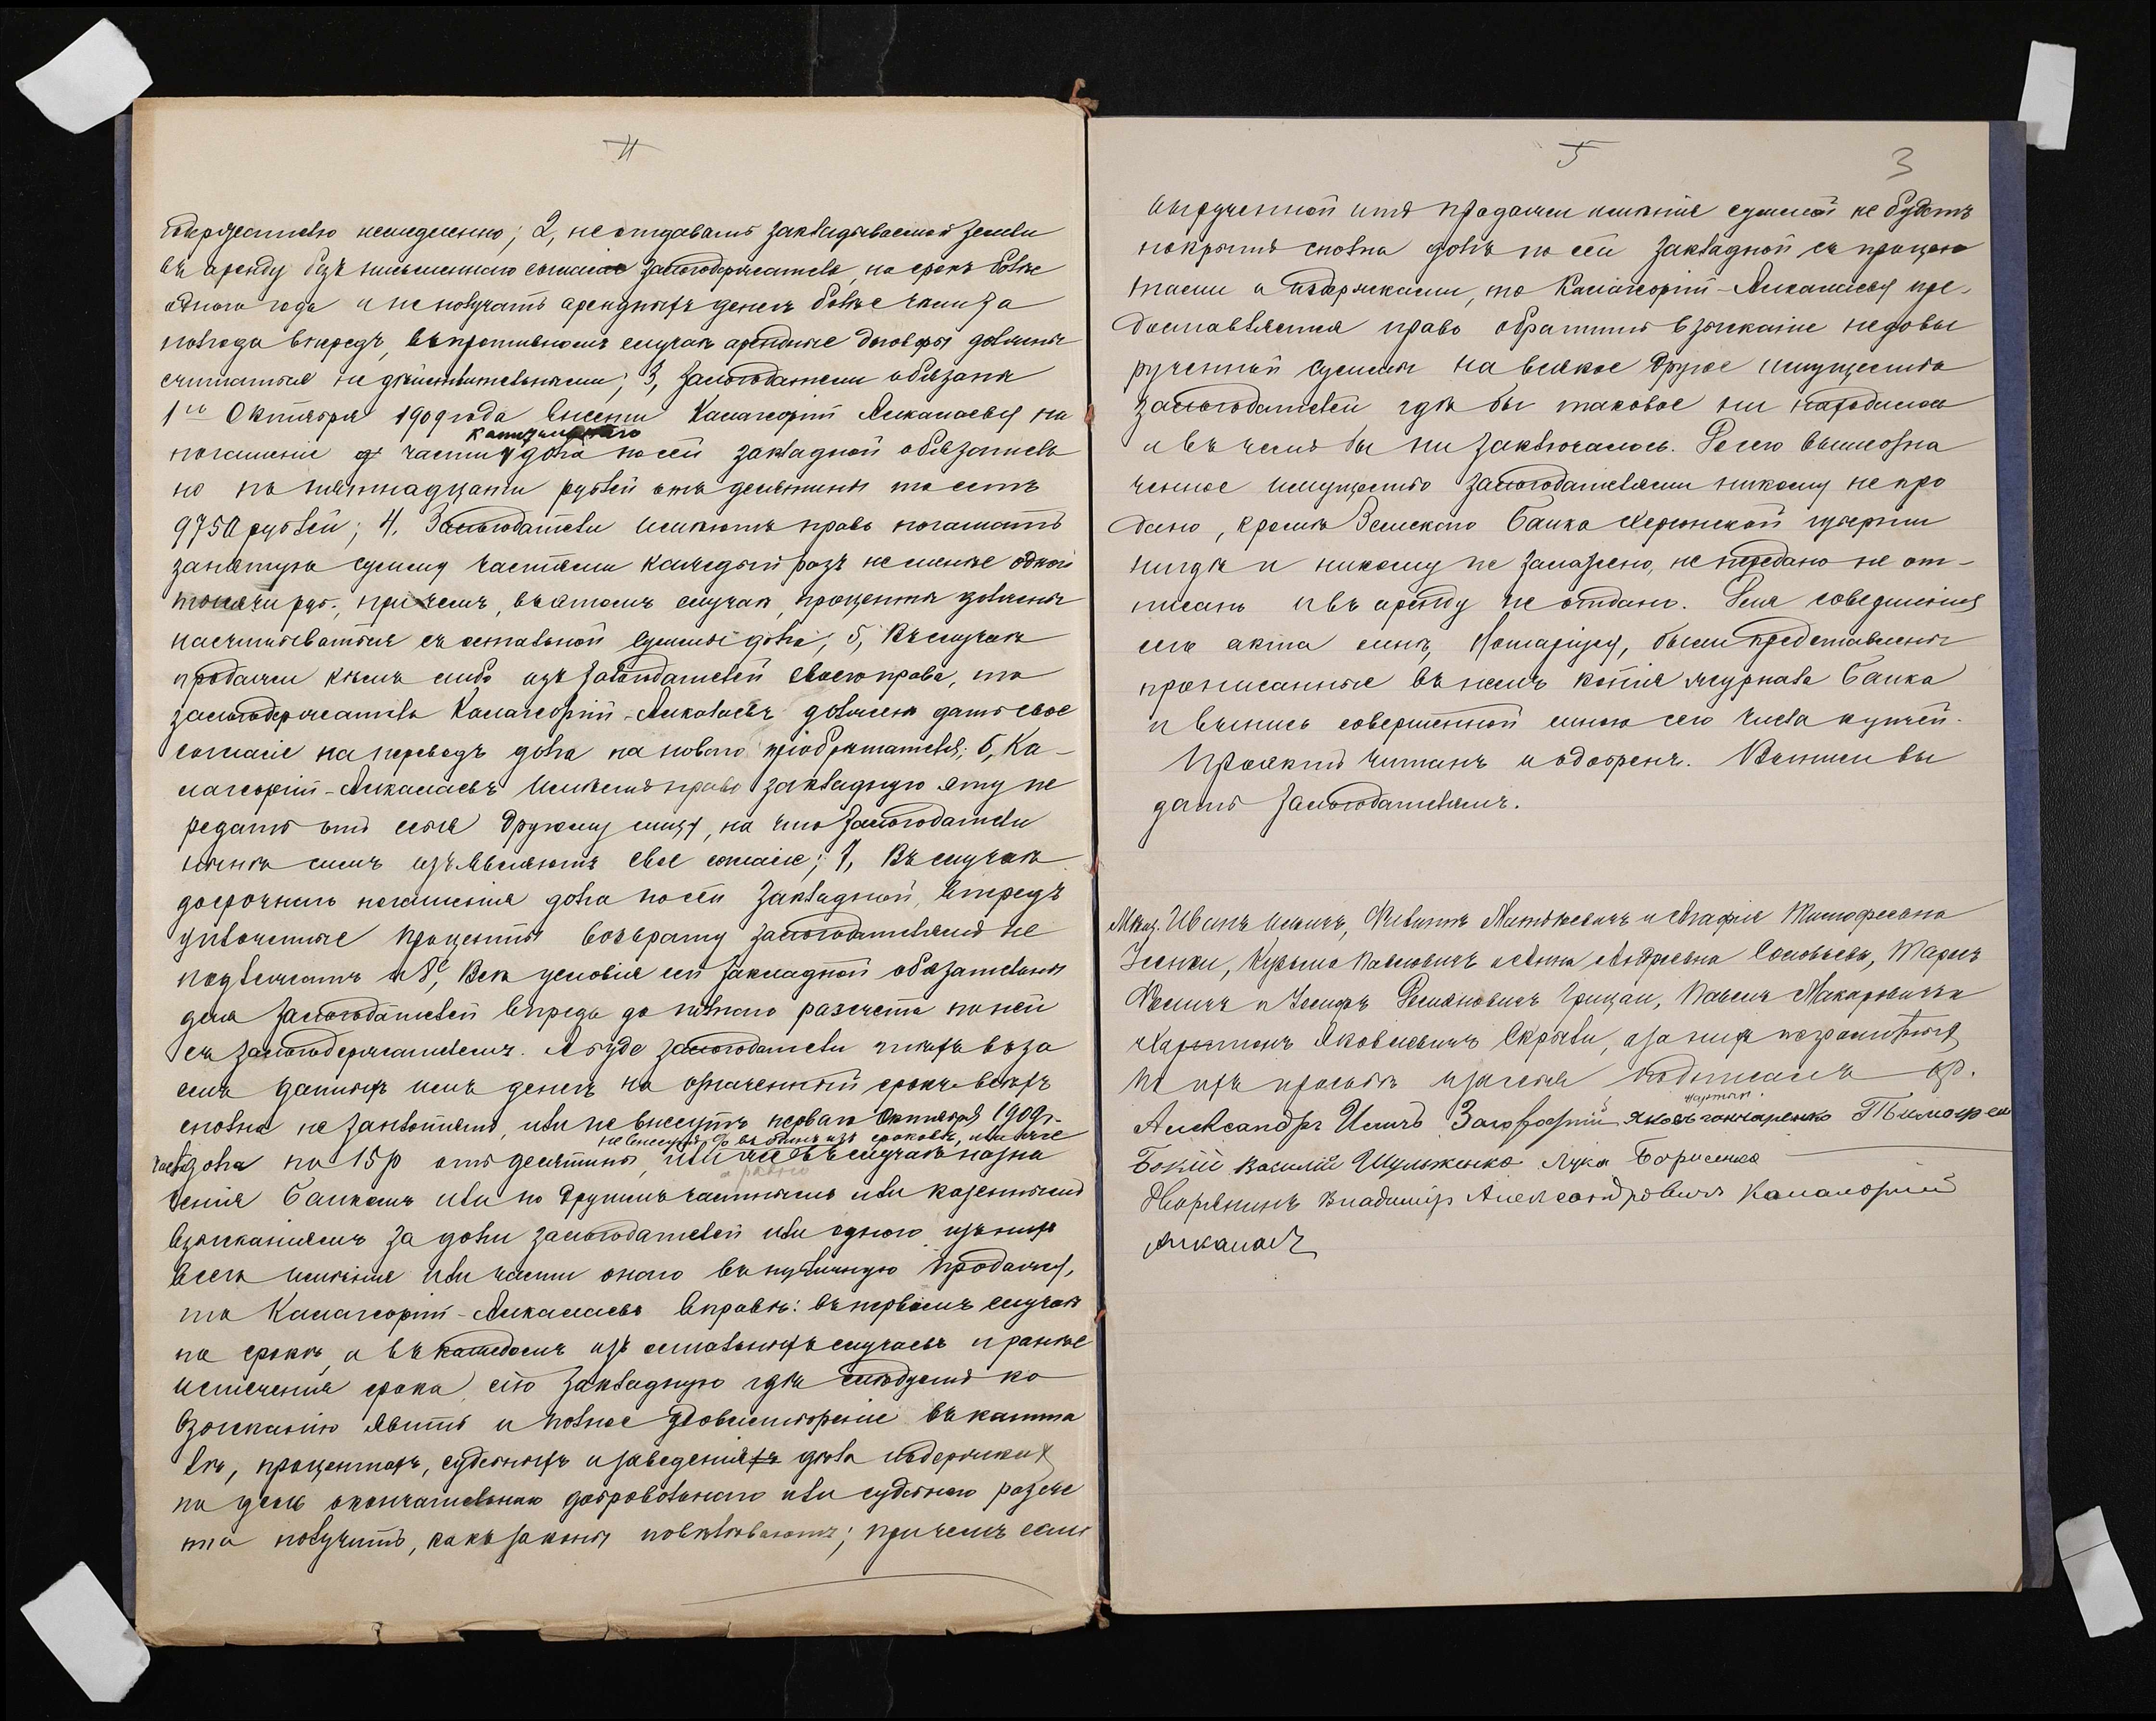 4
держателю немедленно; 2, не отдавать закладываемой земли
въ аренду безъ письменнаго согласія залогодержателя, на срокъ болѣе
одного года и не получать арендныхъ денегъ болѣе чѣмъ за
полгода впередъ, въ противномъ случаѣ арендные договоры должны
считаться не дѣйствительными; 3, залогодатели обязаны
1го Октября 1909 года внести Калагеоргій Алкалаеву на
капитальнаго
погашеніе части долга по сей закладной обязатель
но по пятнадцати рублей отъ десятины то есть
9750 рублей; 4. Залогодатели имѣютъ право погашать
занятую сумму частями каждый разъ не менѣе одной
тысячи руб., при чемъ, въ этомъ случаѣ, проценты должны
насчитываться съ остальной суммы долга; 5, Въ случаѣ
продажи кѣмъ либо изъ залогодателей своего права, то
залогодержатель Калагеоргій-Алкалаевъ долженъ дать свое
согласіе на переводъ долга на новаго пріобрѣтателя; 6, Ка-
лагеоргій-Алкалаевъ имѣетъ право закладную эту пе
редать отъ себя другому лицу, на что залогодатели
нынѣ симъ изъявляютъ свое согласіе; 7, Въ случаѣ
досрочнаго погашенія долга по сей закладной, впередъ
уплоченные проценты возврату залогодателямъ не
подлежатъ и 8, Всѣ условія сей закладной обязательны
для залогодателей впредь до полнаго разсчета по ней
съ залогодержателемъ. А буде залогодатели тѣхъ въ за
емъ данныхъ имъ денегъ на означенный срокъ всѣхъ
сполна не заплотятъ, или не внесутъ перваго Октября 1909 г.
не внесутъ % въ одинъ изъ сроковъ, или же
часть долга по 15 р отъ десятины, въ случаѣ назна
а равно
ченія Банкомъ или по другимъ частнымъ или казеннымъ
взысканіямъ за долги залогодателей или одного изъ нихъ
всего имѣнія или части онаго въ публичную продажу,
то Калагеоргій-Алкалаевъ вправѣ: въ первомъ случаѣ
по срокѣ, а въ каждомъ изъ остальныхъ случаевъ и ранѣе
истеченія срока, сію закладную гдѣ слѣдуетъ ко
взысканію явить и полное удовлетвореніе въ капита
лѣ, процентахъ, судебныхъ и за веденія дѣла издержкахъ
по день окончательнаго добровольнаго или судебнаго разсче
та получить, какъ законы повелѣваютъ; при чемъ если
5
3
вырученной отъ продажи имѣнія суммой не будетъ
покрытъ сполна долгъ по сей закладной съ процен
тами и издержками, то Калагеоргій-Алкалаеву пре-
доставляется право обратить взысканіе недовы
рученной суммы на всякое другое имущество
залогодателей гдѣ бы таковое ни находилось
и въ чемъ бы ни заключалось. Сего вышеозна
ченное имущество залогодателями никому не про
дано, кромѣ Земскаго Банка Херсонской губерніи
нигдѣ и никому не заложено, не передано не от-
писано и въ аренду не отдано. Для совершенія
сего акта мнѣ, Нотаріусу, были представлены
прописанные въ немъ копія журнала Банка
и выпись совершенной мною сего числа купчей.
Проектъ читанъ и одобренъ. Выписи вы
дать залогодателямъ.
Иванъ Ильичъ, Филиппъ Матвѣевичъ и Агафія Тимофеевна
Усенки, Кузьма Павловичъ и Анна Андреевна Соловьевы, Марія
Грицаи, Павелъ Макаровичъ и
Харитонъ Яковлевичъ Скрыли, а за нихъ неграмотныхъ
по ихъ просьбѣ и за себя подписался
Александръ Ильичъ Загородній Яковъ Гончаренко Тимофей
Бокій Василій Шульженко Лука Борисенко
Дворянинъ Владиміръ Александровичъ Калагеоргій
Алкалаевъ